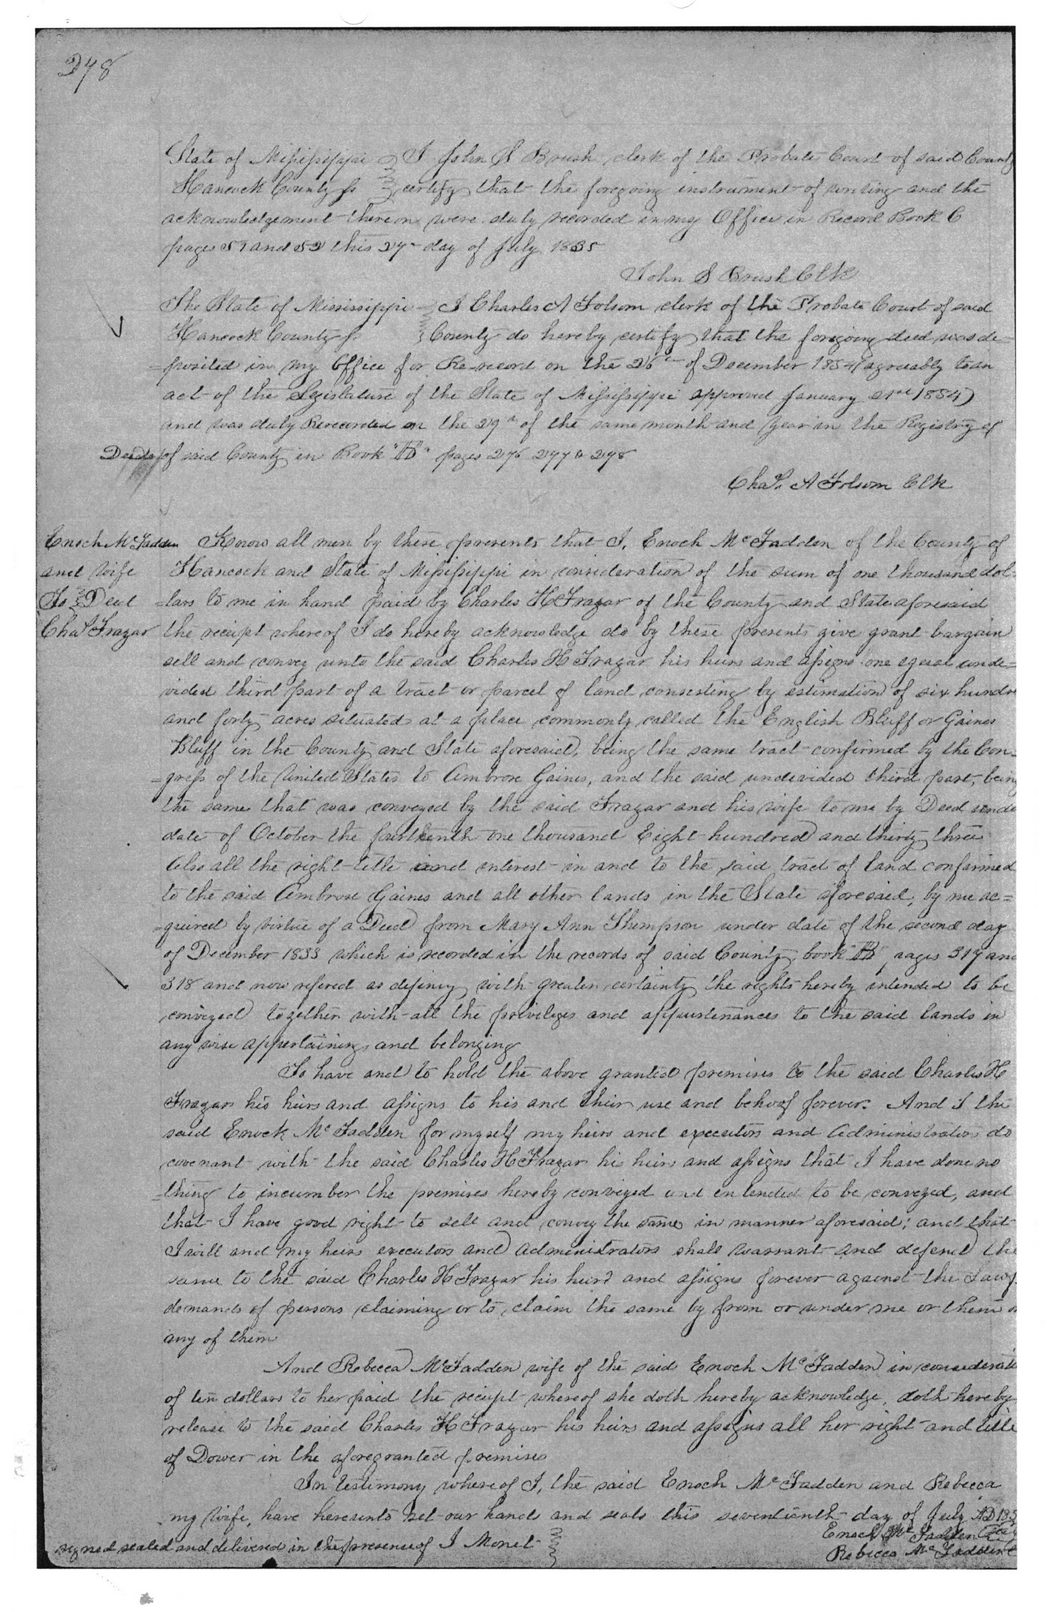 278
State of Mississippi } I John S Brush clerk of the Probate Court of said County
Hancock County ss } certify that the foregoing instrument of writing and the
acknowledgement thereon were duly recorded in my Office in Record Book C
pages 51 and 52 this 27th day of July 1835
John S Brush Clk
The State of Mississippi } I Charles A Folsom clerk of the Probate Court of said
Hancock County ss. } County do hereby certify that the foregoing deed was de-
-posited in my Office for Re-record on the 26th of December 1854 (agreeably to an
act of the Legislature of the State of Mississippi approved January 21st 1854)
and was duly Rerecorded on the 29th of the same month and year in the Registry of
Deeds of said County in Book "B" pages 276 277 & 278
Chas. A Folsom Clk
Enoch McFadden
and Wife
To } Deed
Chas Frazar
Know all men by these presents that I, Enoch McFadden of the County of
Hancock and State of Mississippi in consideration of the sum of one thousand dol-
-lars to me in hand paid by Charles H Frazar of the County and State aforesaid
the receipt whereof I do hereby acknowledge do by these presents give grant bargain
sell and convey unto the said Charles H Frazar his heirs and assigns one equal unde-
-vided third part of a tract or parcel of land consesting by estimation of six hundre
and forty acres situated at a place commonly called the English Bluff or Gaines
Bluff in the County and State aforesaid, being the same tract confirmed by the Con-
-gress of the United States to Ambrose Gaines, and the said undivided third part, being
the same that was conveyed by the said Frazar and his wife to me by Deed under
date of October the one thousand Eight hundred and thirty three
Also all the right title and interest in and to the said tract of land confirmed
to the said Ambrose Gaines and all other lands in the State aforesaid, by me ac-
-quired by virtue of a Deed from Mary Ann Thompson under date of the second day
of December 1833 which is recorded in the records of said County, book "B", pages 317 and
318 and now refered as defining with greater certainty the rights hereby intended to be
conveyed together with all the privileges and appurtenances to the said lands in
any wise appertaining and belonging
To have and to hold the above granted premises to the said Charles H
Frazar his heirs and assigns to his and their use and behoof forever. And I the
said Enoch McFadden for myself my heirs and executors and administrators do
covenant with the said Charles H Frazar his heirs and assigns that I have done no
-thing to incumber the premises hereby conveyed and entended to be conveyed, and
that I have good right to sell and convey the same in manner aforesaid; and that
I will and my heirs executors and administrators shall warrant and defend the
same to the said Charles H Frazar his heirs and assigns forever against the Lawf
demands of persons claiming or to claim the same by from or under me or them or
any of them
And Rebecca McFadden wife of the said Enoch McFadden in considerati
of ten dollars to her paid the receipt whereof she doth hereby acknowledge, doth hereby
release to the said Charles H Frazar his heirs and assigns all her right and title
of Dower in the aforegranted premises
In testimony whereof I, the said Enoch McFadden and Rebecca
my Wife, have hereunto set our hands and seals this seventeenth day of July AD 183
Enoch McFadden
signed sealed and delivered in the presence of J Monet } Rebecca McFadden